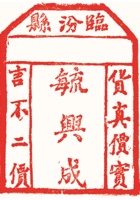 臨汾縣
貨真價實
毓興成
言不二價